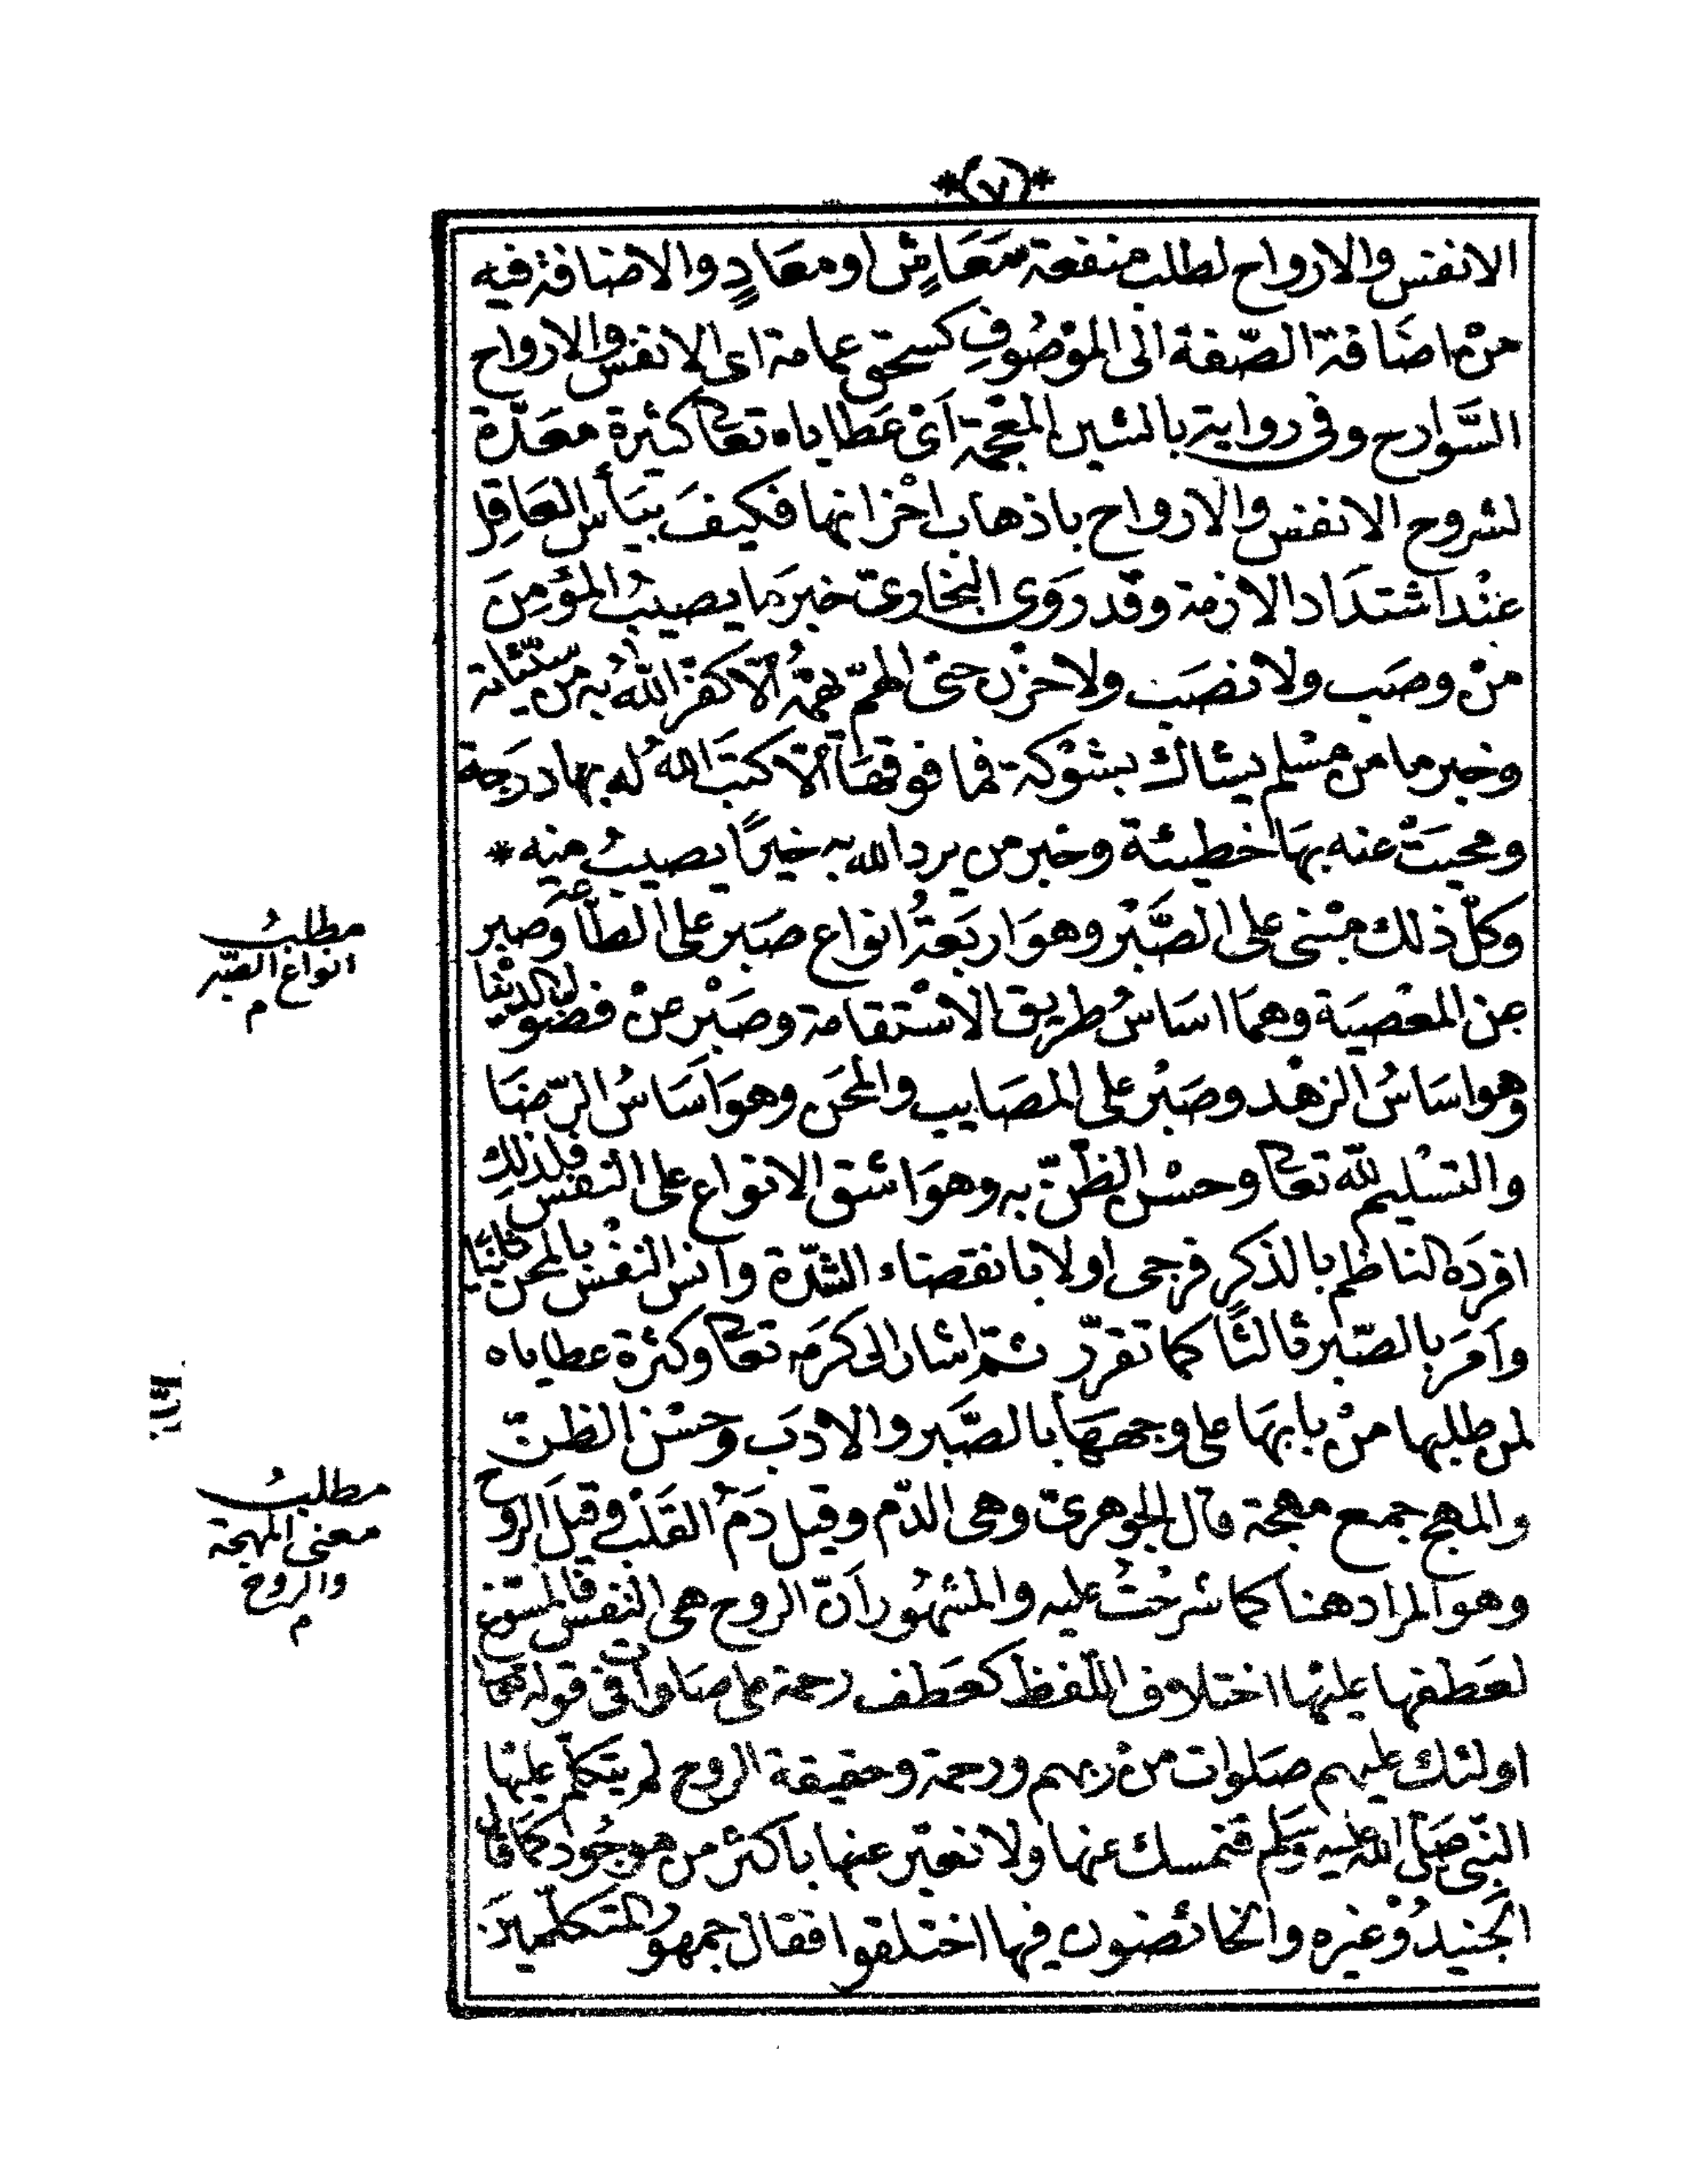 *(٧)*
الانفس والارواح لطلب منفعة مَعَاشٍ او معَادٍ والاضافة فيه
منْ اضَافة الصّفة الى الموْصُوفِ كسحق عمامة اى الانفس والارواح
السَّوارح وفى رواية بالشين المعْجمة اَىْ عَطاياه تعالى كثيرة معَدّة
لشروح الانفس والارواح باذهاب احْزانها فكيفَ ييَأس العَاقِل
عنْد اشتدَاد الازمة وقد رَوَى البخارىّ خبرَ مَا يصيبُ المؤمِنَ
منْ وصَب ولا نصَب ولا حزن حتى الهمّ يهمّهُ الّا كفّرَ اللهُ به من سيّئاته
وخبر ما من مسْلم يشاك بشوْكة فما فوقهَا الّا كتبَ اللهُ له بها درَجة
ومحيَتْ عنه بهَا خطيئة وخبر من يرد الله به خيرًا يصيبُ منه *
وكلّ ذلك مبْنى على الصَّبْر وهوَ اربَعَةُ انواع صَبَر على الطّاعة وصبر
عن المعْصيَة وهمَا اسَاسُ طريق الاسْتقامة وصَبْر عنْ فضول الدنْيا
وهو اسَاسُ الزهْد وصَبْر على المصَايب والمحَن وهوَ اَسَاسُ الرّضَا
والتسْليم للّه تعالى وحسْن الظّنّ به وهوَ اشق الانواع على النفس فلذلك
افردَه الناظم بالذكر فرجى اولا بانقضاء الشدّة وآنس النفسْ بالمحن ثانيًا
واَمَر بالصّبر ثالثًا كما تقرّر ثمّ اشار الى كرَمه تعالى وكثرة عطاياه
لمن طلبها منْ بابهَا على وجههَا بالصَّبر والادَب وحسْن الظنّ
والمهج جمع مهجة قال الجوهرىّ وهى الدّم وقيل دَمُ القلْب وقيل الروح
وهو المراد هنا كما شرحْتُ عليه والمشهُور اَنّ الروح هى النفس فالمسَوّغ
لعَطفها عليْها اختلاف اللّفظ كعَطف رحمة على صَلوات فى قوله تعالى
اولئك عليهم صَلوات منْ ربهم ورحمة وحقيقة الروح لم يتكلّم عليْها
النّبى صَلّى اللهُ عليْه وسَلم فنمسك عنها ولا نعبّر عنها باكثر من موجُود كمَا قال
الجَنيدُ وَغيره والخائضون فيها اختلفوا فقال جمهور المتكلّمينَ
مطلبُ
انواع الصّبر
م
مطلبُ
معنى المهجة
والروح
م